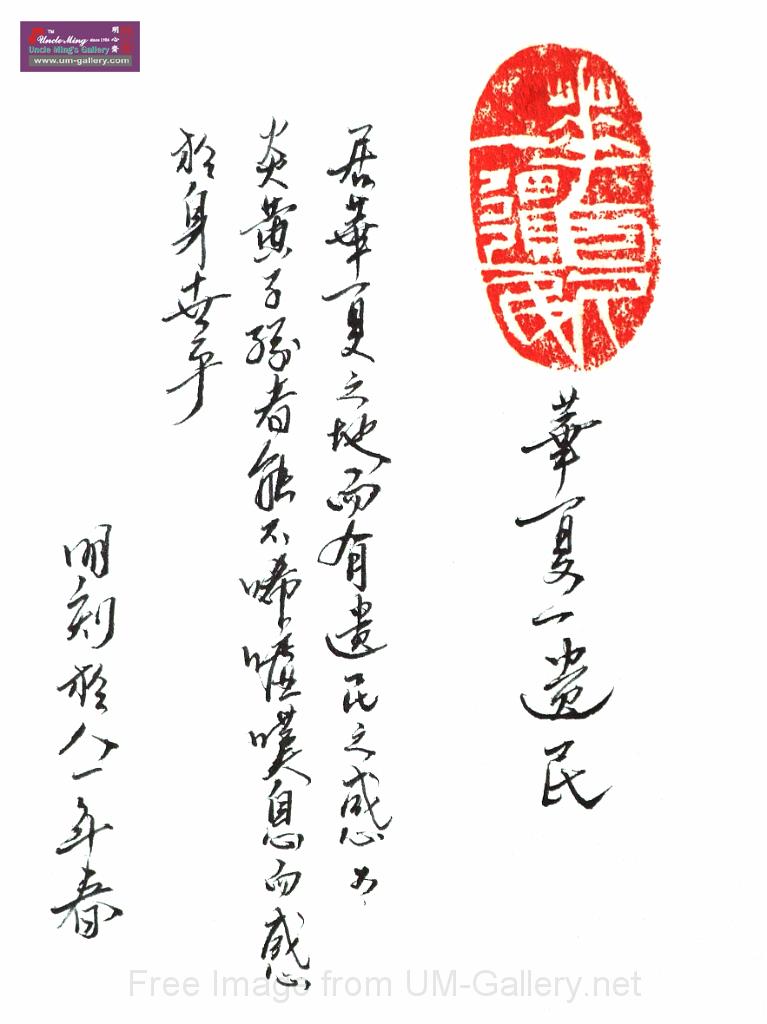 TM
Uncle Ming since 1986
明心齋
Uncle Ming's Gallery
www.um-gallery.com
華夏一遺民
華夏一遺民
居華夏之地而有遺民之感為
炎黃子孫者能不唏噓嘆息而感
於身世乎
明刻於八一年春
Free Image from UM-Gallery.net